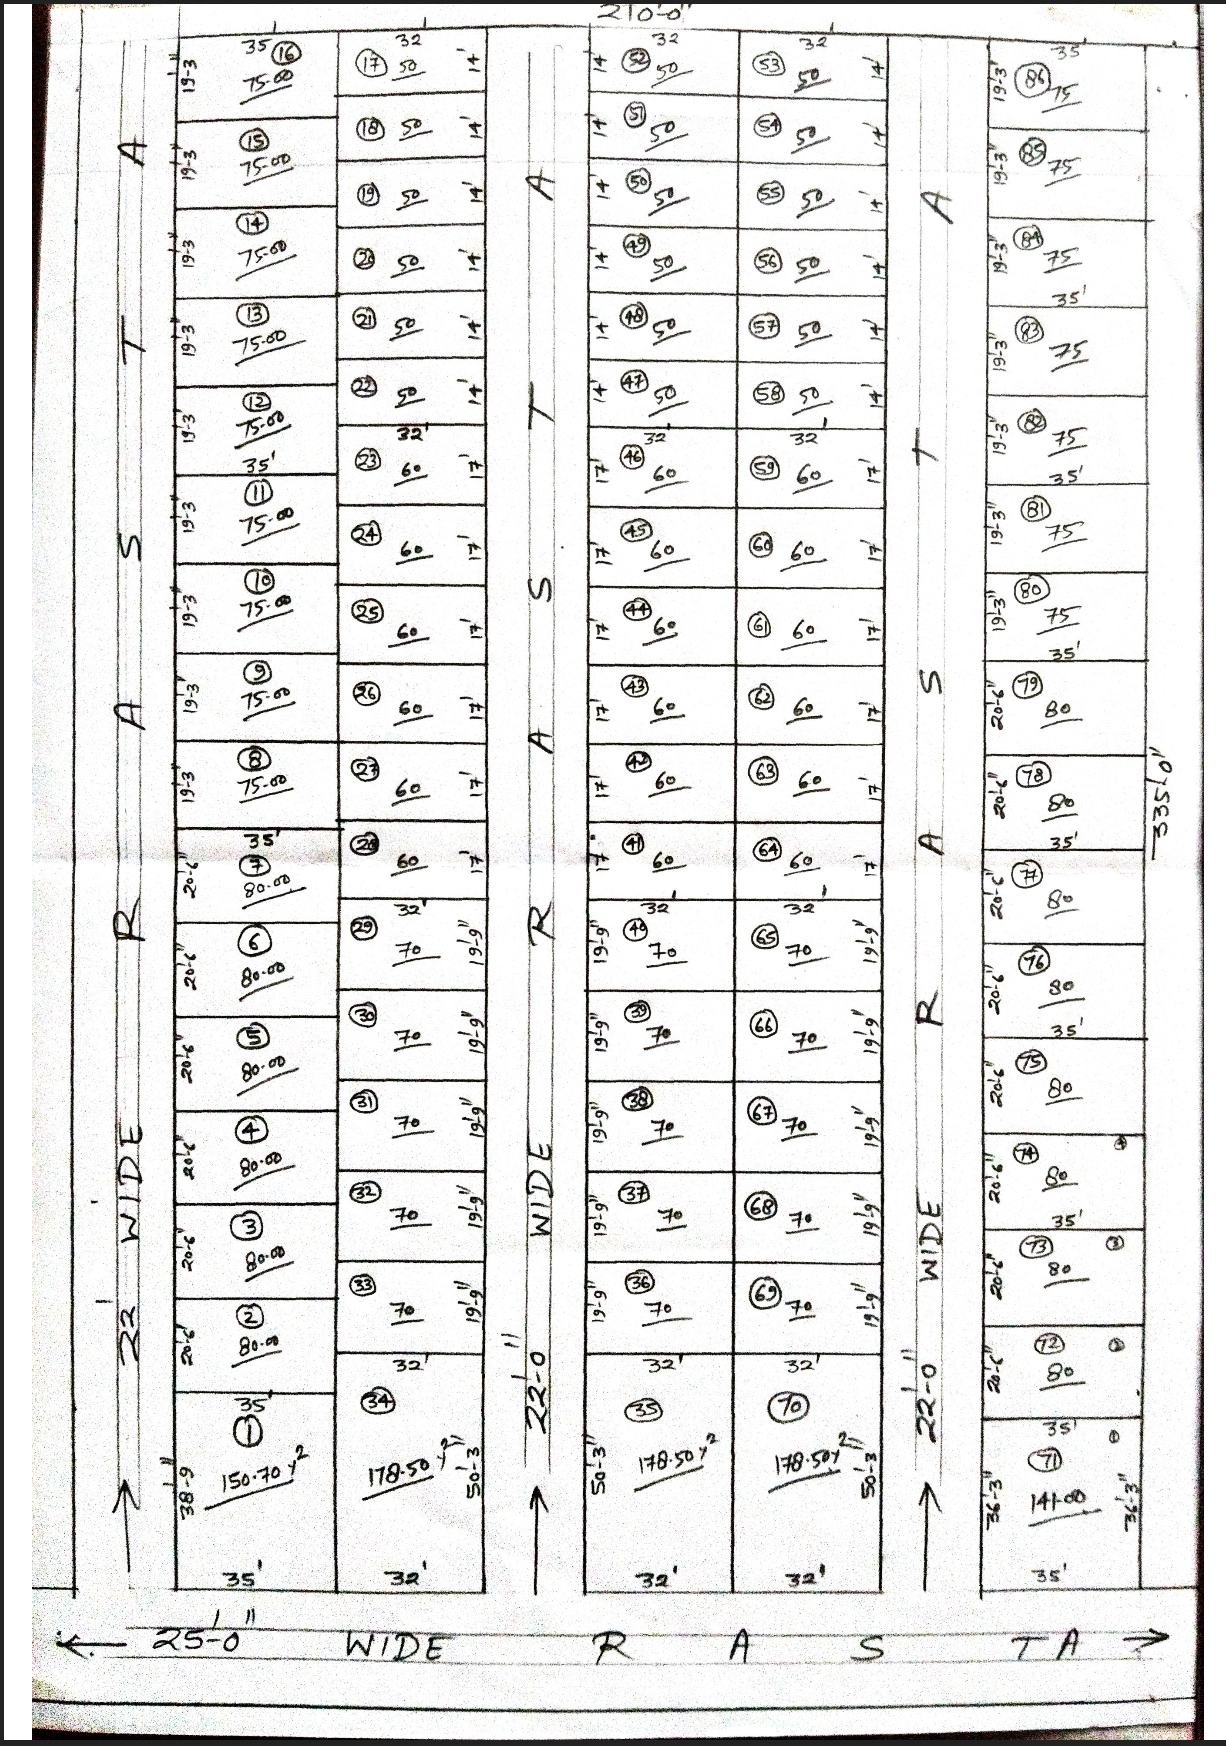 210'-0"
22' WIDE RASTA
35 16
19-3" 75-00
15
19-3" 75-00
14
19-3" 75-00
13
19-3" 75-00
12
19-3" 75-00
35'
11
19-3" 75-00
10
19-3" 75-00
9
19-3" 75-00
8
19-3" 75-00
35'
7
20'-6" 80-00
6
20'-6" 80-00
5
20'-6" 80-00
4
20'-6" 80-00
3
20'-6" 80-00
2
20'-6" 80-00
35'
1
38'-9" 150.70 Y²
35'
32
17 50 14'
18 50 14'
19 50 14'
20 50 14'
21 50 14'
22 50 14'
32'
23 60 17'
24 60 17'
25 60 17'
26 60 17'
27 60 17'
28 60 17'
32'
29 70 19'-9"
30 70 19'-9"
31 70 19'-9"
32 70 19'-9"
33 70 19'-9"
32'
34
178.50 Y² 50'-3"
32'
22'-0" WIDE RASTA
32
14' 52 50
14' 51 50
14' 50 50
14' 49 50
14' 48 50
14' 47 50
32'
17' 46 60
17' 45 60
17' 44 60
17' 43 60
17' 42 60
17' 41 60
32'
19'-9" 40 70
19'-9" 39 70
19'-9" 38 70
19'-9" 37 70
19'-9" 36 70
32'
35
50'-3" 178.50 Y²
32'
32
53 50 14'
54 50 14'
55 50 14'
56 50 14'
57 50 14'
58 50 14'
32'
59 60 17'
60 60 17'
61 60 17'
62 60 17'
63 60 17'
64 60 17'
32'
65 70 19'-9"
66 70 19'-9"
67 70 19'-9"
68 70 19'-9"
69 70 19'-9"
32'
70
178.50 Y² 50'-3"
32'
22'-0" WIDE RASTA
35
19'-3" 86 75
19'-3" 85 75
19'-3" 84 75
35'
19'-3" 83 75
19'-3" 82 75
35'
19'-3" 81 75
19'-3" 80 75
35'
20'-6" 79 80
20'-6" 78 80
35'
20'-6" 77 80
20'-6" 76 80
35'
20'-6" 75 80
20'-6" 74 80 4
35'
20'-6" 73 80 3
20'-6" 72 80 2
35'
71
36'-3" 141-00 36'-3"
35'
335'-0"
25'-0" WIDE RASTA